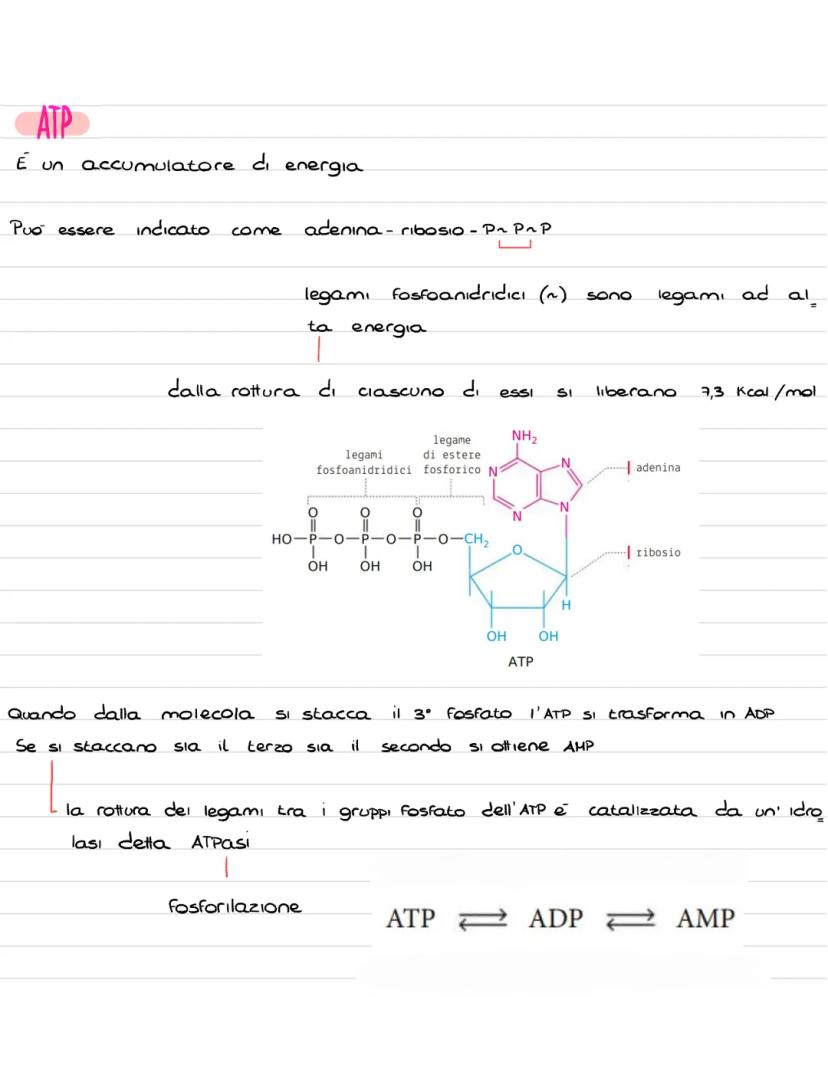 ATP
È un accumulatore di energia
Può essere indicato come adenina - ribosio - P~P~P
legami fosfoanidridici (~) sono legami ad al=
ta energia
dalla rottura di ciascuno di essi si liberano 7,3 Kcal/mol
legami fosfoanidridici
legame di estere fosforico
NH₂
N
N
N
N
adenina
O O O
HO-P-O-P-O-P-O-CH₂
OH OH OH
O
ribosio
H
OH OH
ATP
Quando dalla molecola si stacca il 3° fosfato l'ATP si trasforma in ADP
Se si staccano sia il terzo sia il secondo si ottiene AMP
la rottura dei legami tra i gruppi fosfato dell'ATP è catalizzata da un'idro=
lasi detta ATPasi
fosforilazione
ATP ⇄ ADP ⇄ AMP